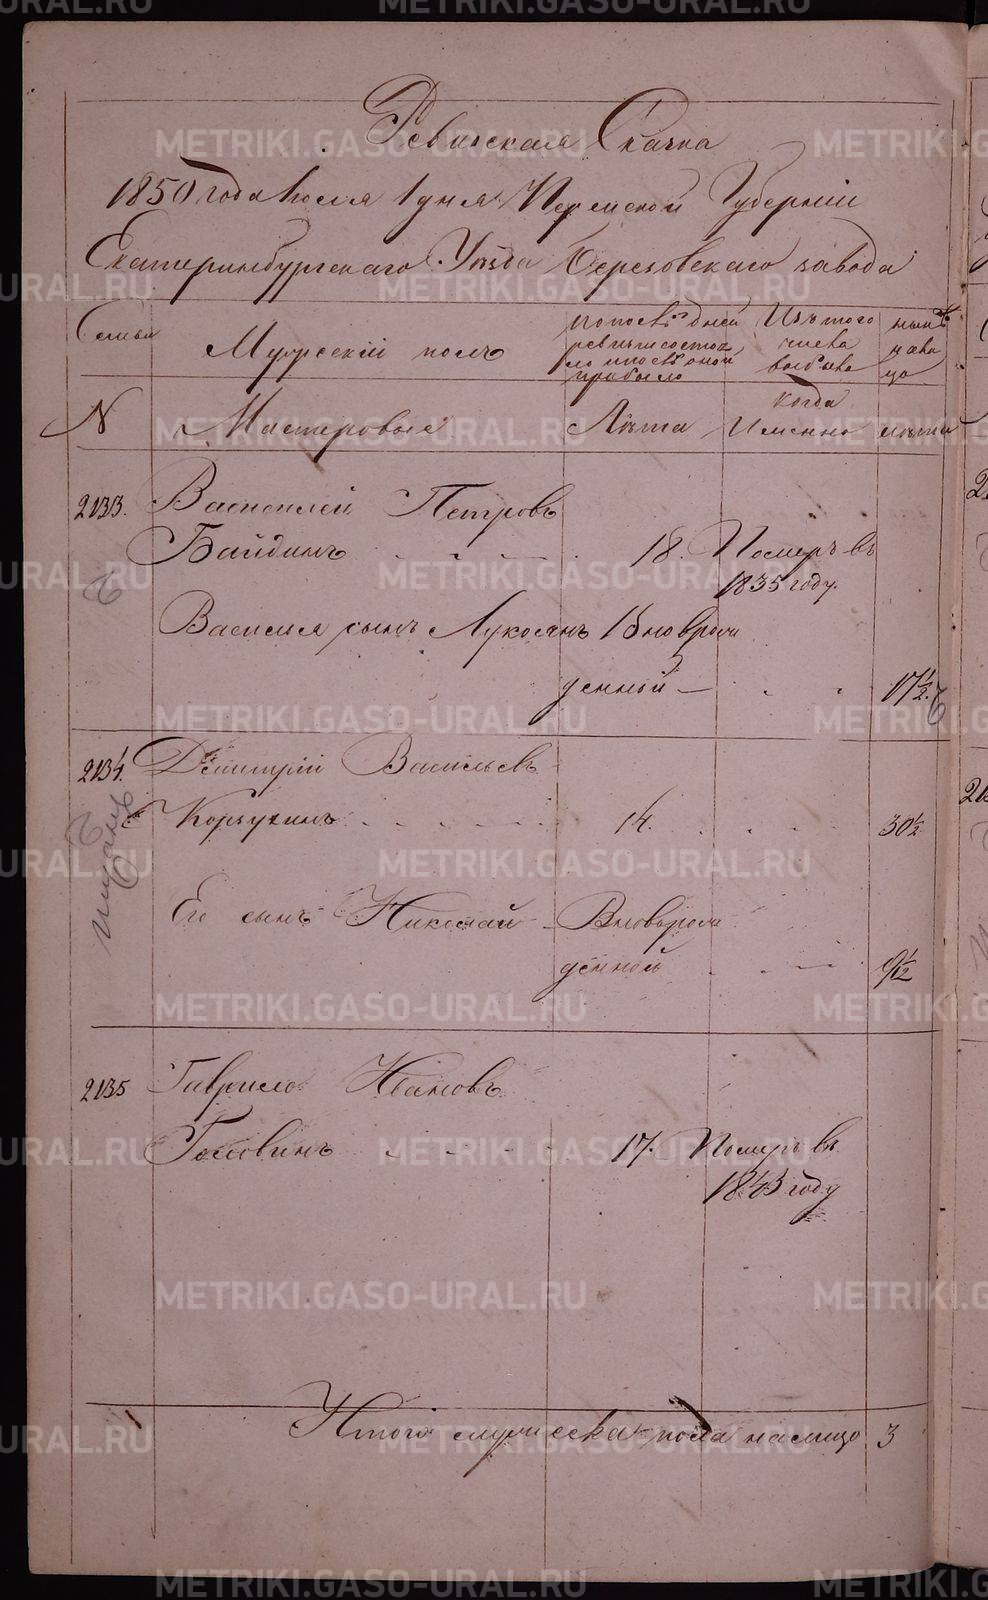 Ревизская Сказка
1850 года Июля 1 дня Пермской Губернiи
Екатеринбургскаго Уѣзда Березовскаго завода
Семьи
Мужескiй полъ
по послѣдней
ревизiи состоя
ло и послѣ оной
прибыло
Изъ того
числа
выбыло
нынѣ
на ли
цо
N
Мастеровые
Лѣта
когда
Именно
лѣта
2133.
Василiй Петровъ
Байдинъ 18. Померъ въ
1835 году.
Василья сынъ Лукоянъ вновро
жденной 17½.
2134.
Дмитрiй Васильевъ
Корзухинъ 14. 30½
Его сынъ Николай Вноврож
денной 9½
2135
Гаврило Ивановъ
Головинъ 17. Померъ въ
1843 году
Итого мужеска пола налицо 3
METRIKI.GASO-URAL.RU